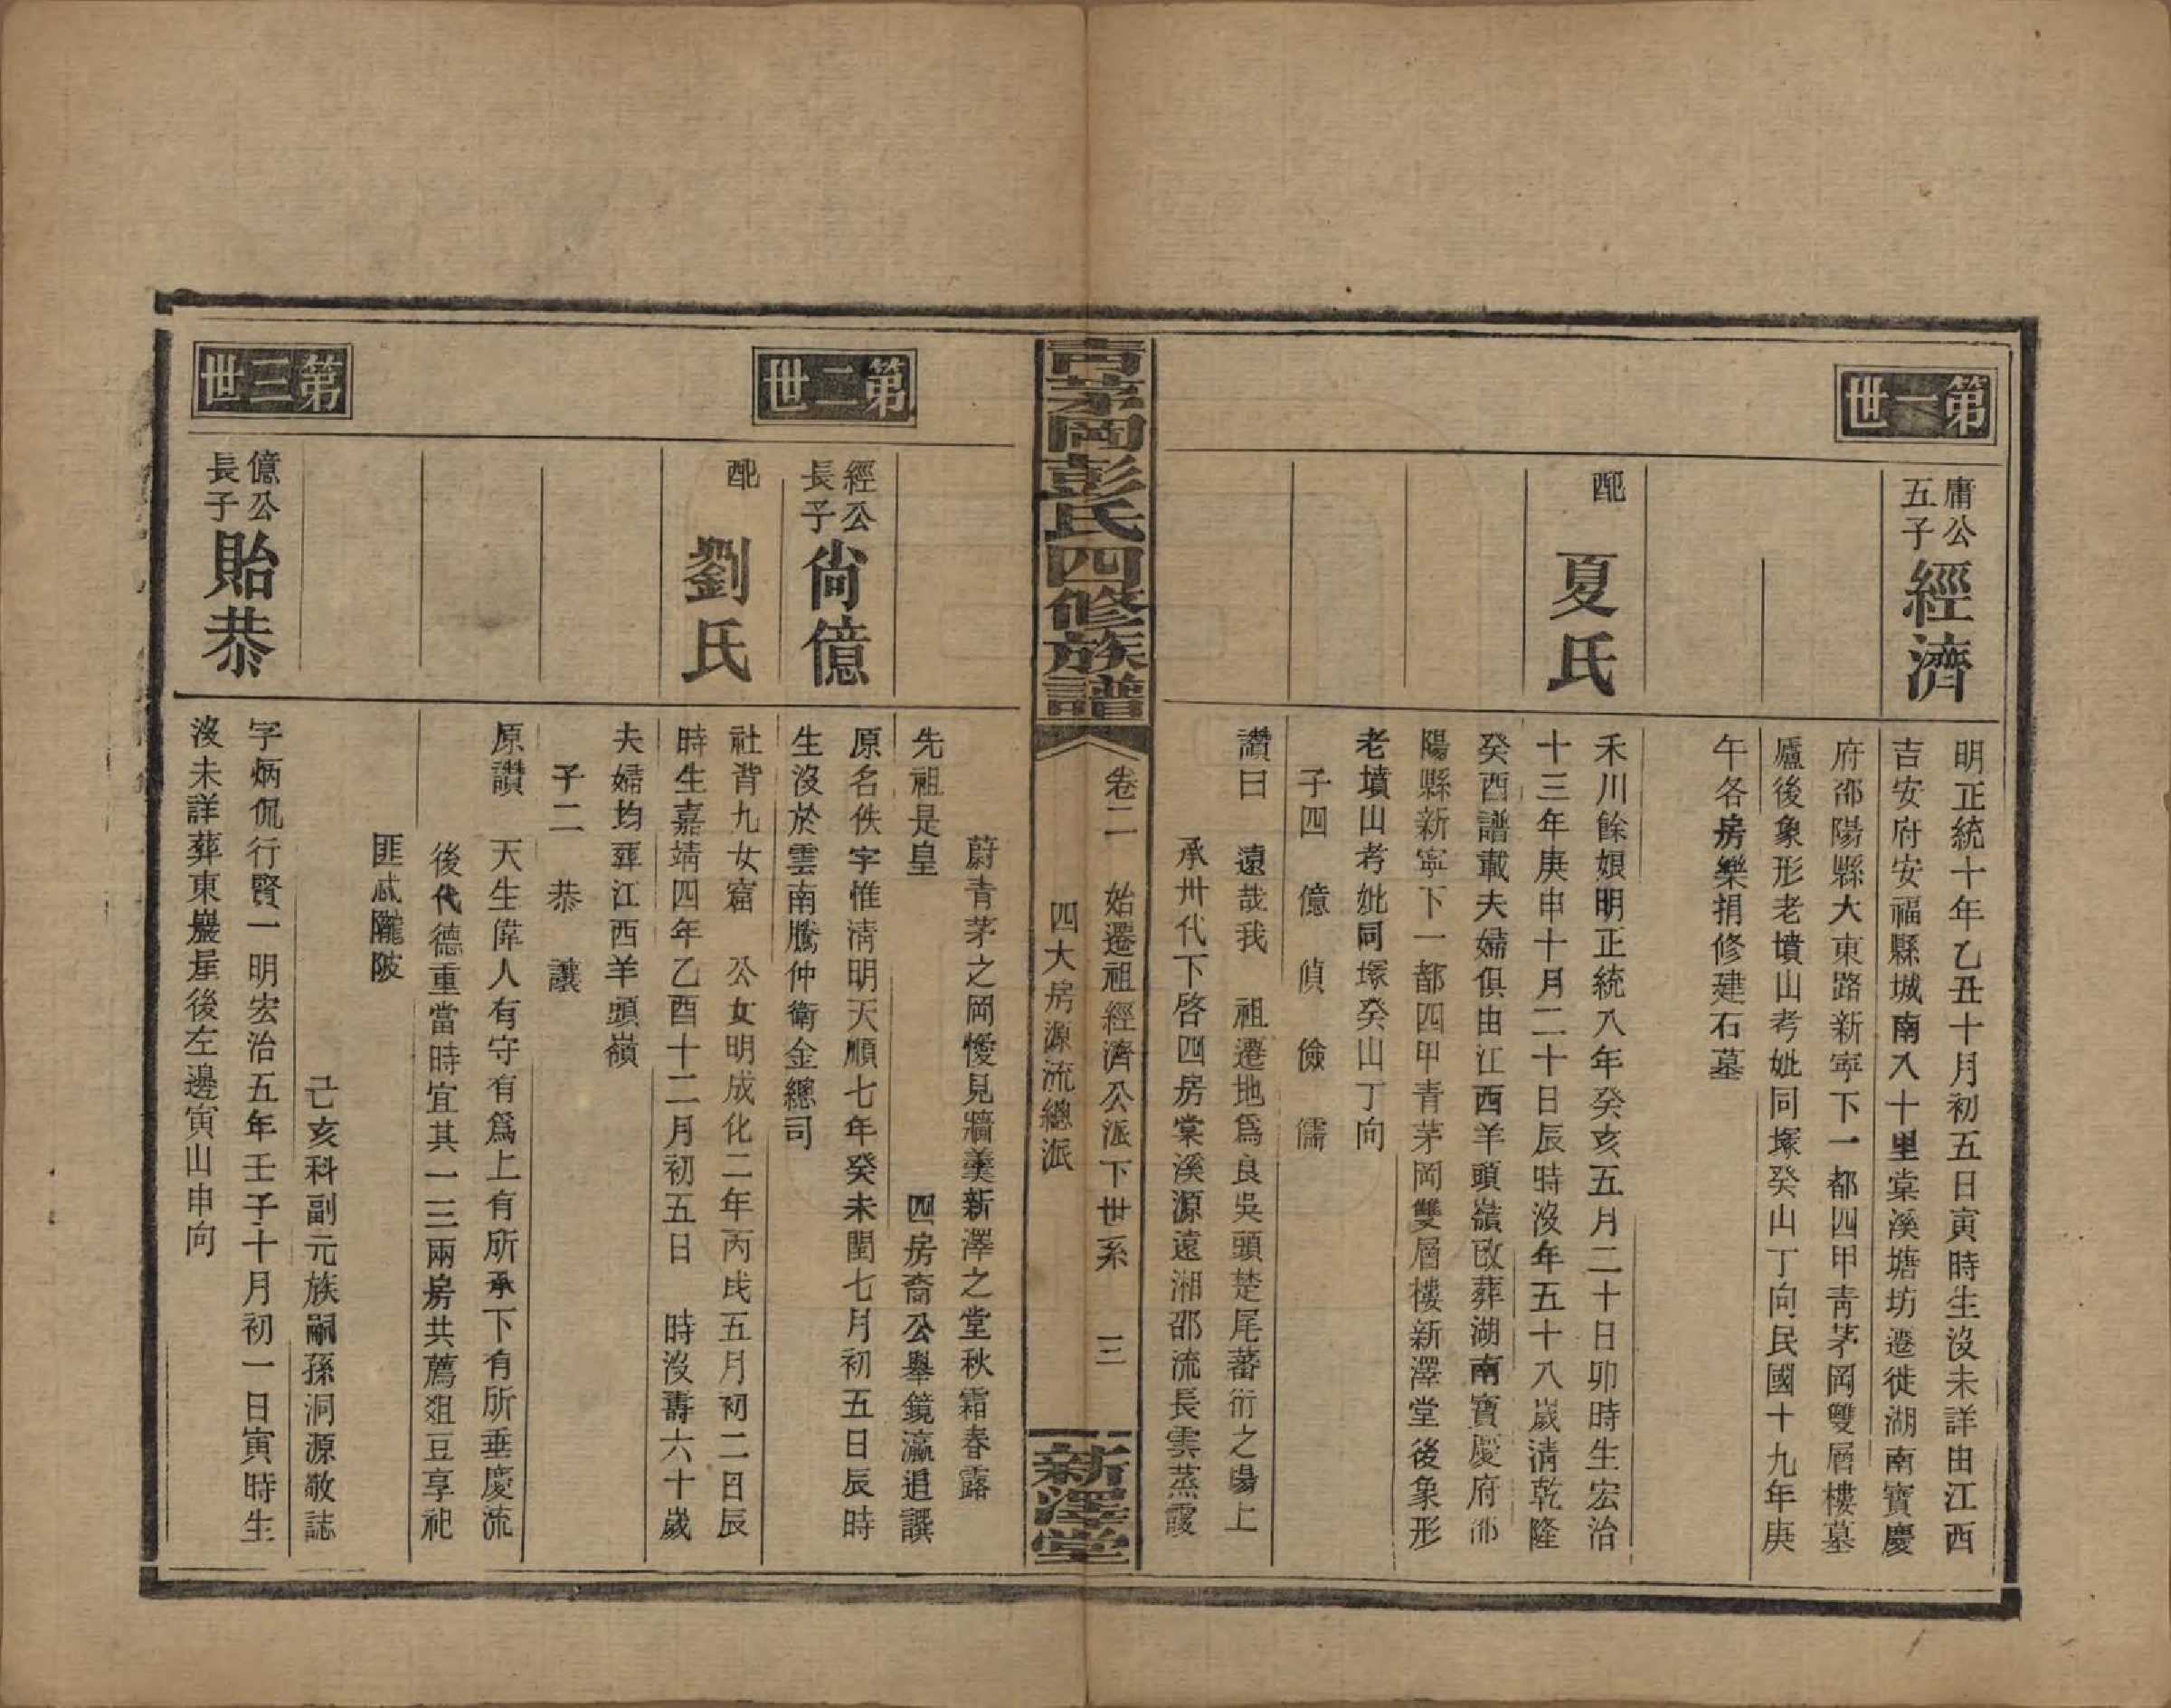 第一世
庸公
五子
經濟
明正統十年乙丑十月初五日寅時生沒未詳由江西
吉安府安福縣城南八十里棠溪塘坊遷徙湖南寶慶
府邵陽縣大東路新寧下一都四甲靑茅岡雙層樓墓
廬後象形老墳山考妣同塚癸山丁向民國十九年庚
午各房樂捐修建石墓
配
夏氏
禾川餘娘明正統八年癸亥五月二十日卯時生宏治
十三年庚申十月二十日辰時沒年五十八歲清乾隆
癸酉譜載夫婦俱由江西羊頭嶺改葬湖南寶慶府邵
陽縣新寧下一都四甲青茅岡雙層樓新澤堂後象形
老墳山考妣同塚癸山丁向
子四 億 偵 儉 儒
讚曰 遠哉我 祖遷地爲良吳頭楚尾蕃衍之陽上
承卅代下啓四房棠溪源遠湘邵流長雲蒸霞
青茅岡彭氏四修族譜
卷二 始遷祖經濟公派下世系 三
四大房源流總派
新澤堂
蔚青茅之岡懓見牆羹新澤之堂秋霜春露
先祖是皇
四房裔公舉鏡瀛追譔
第二世
經公
長子
尙億
原名佚字惟淸明天順七年癸未閏七月初五日辰時
生沒於雲南騰仲衛金總司
配
劉氏
社背九女窟 公女明成化二年丙戌五月初二日辰
時生嘉靖四年乙酉十二月初五日 時沒壽六十歲
夫婦均葬江西羊頭嶺
子二 恭 讓
原讚 天生偉人有守有爲上有所承下有所垂慶流
後代德重當時宜其一三兩房共薦俎豆享祀
匪忒隴陂
己亥科副元族嗣孫洞源敬誌
第三世
億公
長子
貽恭
字炳侃行賢一明宏治五年壬子十月初一日寅時生
沒未詳葬東巖屋後左邊寅山申向